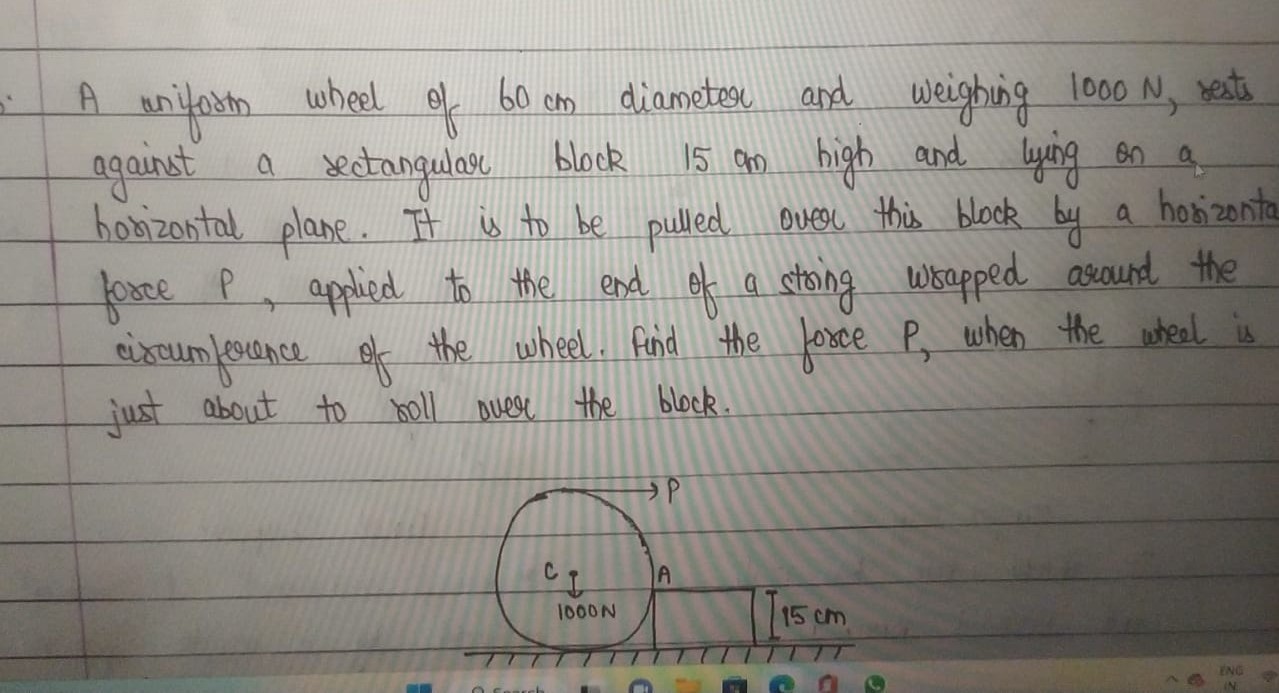 A uniform wheel of 60 cm diameter and weighing 1000 N, rests
against a rectangular block 15 cm high and lying on a
horizontal plane. It is to be pulled over this block by a horizonta
force P, applied to the end of a string wrapped around the
circumference of the wheel. Find the force P, when the wheel is
just about to roll over the block.
P
C A
1000N 15 cm
Search
ENG
IN